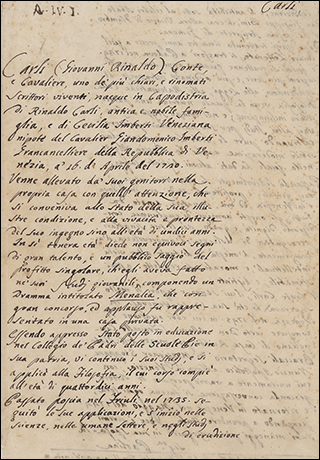 A. IV. I.
Carli,
Carli (Giovanni Rinaldo) Conte,
e Cavaliere, uno de' più chiari, e rinomati
Scrittori viventi, nacque in Capodistria
di Rinaldo Carli, antica e nobile fami-
glia, e di Cecilia Imberti Veneziana
Nipote del Cavalier Giandomenico Imberti
Grancancelliere della Repubblica di Ve-
nezia, a' 16. d' Aprile del 1720.
Venne allevato da' suoi genitori nella
propria casa con quella attenzione, che
si conveniva allo stato della sua illu-
stre condizione, e alla vivacità e prontezza
del suo ingegno sino all'età di undici anni.
In sì tenera età diede non equivoci segni
di gran talento, e un pubblico saggio del
profitto singolare, ch'egli aveva fatto
ne' suoi studj giovanili, componendo un
Dramma intitolato Menalca, che con
gran concorso, ed applauso fu rappre-
sentato in una casa privata.
Essendo appresso stato posto in educazione
nel collegio de' Padri delle Scuole Pie in
sua patria, vi continuò i suoi studj, e si
applicò alla Filosofia, il cui corso compiè
all'età di quattordici anni.
Passato poscia nel Friuli nel 1735. se-
guitò le sue applicazioni, e s'iniziò nelle
scienze, nelle umane lettere, e negli studj
di erudizione